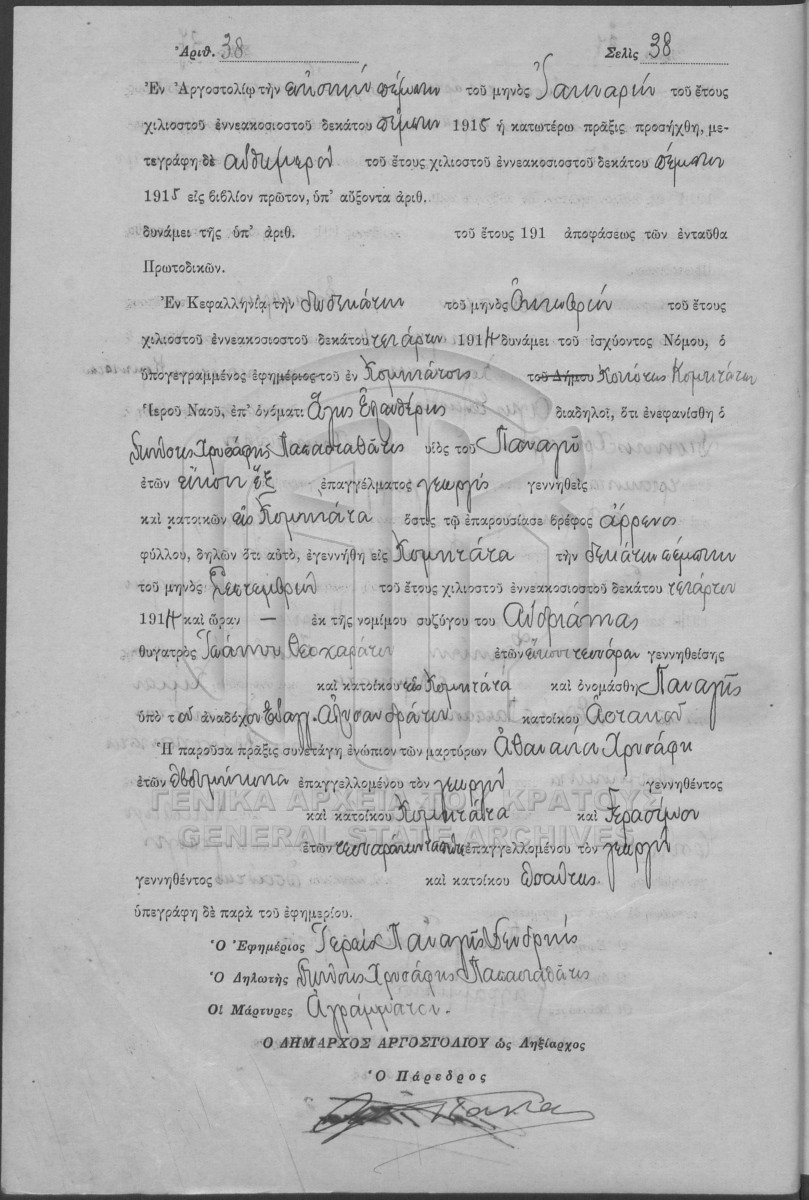 Ἀριθ. 38 Σελὶς 38
Ἐν Ἀργοστολίῳ τὴν εἰκοστὴν πέμπτην τοῦ μηνὸς Ἰανουαρίου τοῦ ἔτους
χιλιοστοῦ ἐννεακοσιοστοῦ δεκάτου πέμπτου 1915 ἡ κατωτέρω πρᾶξις προσήχθη, με-
τεγράφη δὲ αὐθημερὸν τοῦ ἔτους χιλιοστοῦ ἐννεακοσιοστοῦ δεκάτου πέμπτου
1915 εἰς βιβλίον πρῶτον, ὑπ' αὔξοντα ἀριθ.
δυνάμει τῆς ὑπ' ἀριθ. τοῦ ἔτους 191 ἀποφάσεως τῶν ἐνταῦθα
Πρωτοδικῶν.
Ἐν Κεφαλληνίᾳ τὴν δωδεκάτην τοῦ μηνὸς Ὀκτωβρίου τοῦ ἔτους
χιλιοστοῦ ἐννεακοσιοστοῦ δεκάτου τετάρτου 1914 δυνάμει τοῦ ἰσχύοντος Νόμου, ὁ
ὑπογεγραμμένος ἐφημέριος τοῦ ἐν Κομητάτοις τοῦ Δήμου Κοινότητος Κομητάτων
Ἱεροῦ Ναοῦ, ἐπ' ὀνόματι Ἁγίας Ἐλευθερίας διαδηλοῖ, ὅτι ἐνεφανίσθη ὁ
Διονύσιος Χρυσάφης Παπασταθάτος υἱὸς τοῦ Παναγῆ
ἐτῶν εἴκοσι ἓξ ἐπαγγέλματος γεωργὸς γεννηθεὶς
καὶ κατοικῶν εἰς Κομητάτα ὅστις τῷ ἐπαρουσίασε βρέφος ἄρρενος
φύλλου, δηλῶν ὅτι αὐτὸ, ἐγεννήθη εἰς Κομητάτα τὴν δεκάτην πέμπτην
τοῦ μηνὸς Σεπτεμβρίου τοῦ ἔτους χιλιοστοῦ ἐννεακοσιοστοῦ δεκάτου τετάρτου
1914 καὶ ὥραν — ἐκ τῆς νομίμου συζύγου του Ἀνδριάνας
θυγατρὸς Ἰωάννου Θεοχαράτου ἐτῶν εἴκοσι τεσσάρων γεννηθείσης
καὶ κατοίκου εἰς Κομητάτα καὶ ὀνομάσθη Παναγῆς
ὑπὸ τοῦ ἀναδόχου Εὐαγγ. Ἀλυσανδράτου κατοίκου Ἀστακοῦ
Ἡ παροῦσα πρᾶξις συνετάγη ἐνώπιον τῶν μαρτύρων Ἀθανασίου Χρυσάφη
ἐτῶν ἑβδομήκοντα ἐπαγγελλομένου τὸν γεωργὸν γεννηθέντος
καὶ κατοίκου Κομητάτα καὶ Γερασίμου
ἐτῶν τεσσαράκοντα ἐπαγγελλομένου τὸν γεωργὸν
γεννηθέντος καὶ κατοίκου ὡσαύτως
ὑπεγράφη δὲ παρὰ τοῦ ἐφημερίου.
Ὁ Ἐφημέριος Ἱερεὺς Παναγῆς Δενδρινός
Ὁ Δηλωτὴς Διονύσιος Χρυσάφης Παπασταθάτος
Οἱ Μάρτυρες Ἀγράμματοι.
Ὁ ΔΗΜΑΡΧΟΣ ΑΡΓΟΣΤΟΛΙΟΥ ὡς Ληξίαρχος
Ὁ Πάρεδρος
ΓΕΝΙΚΑ ΑΡΧΕΙΑ ΤΟΥ ΚΡΑΤΟΥΣ
GENERAL STATE ARCHIVES